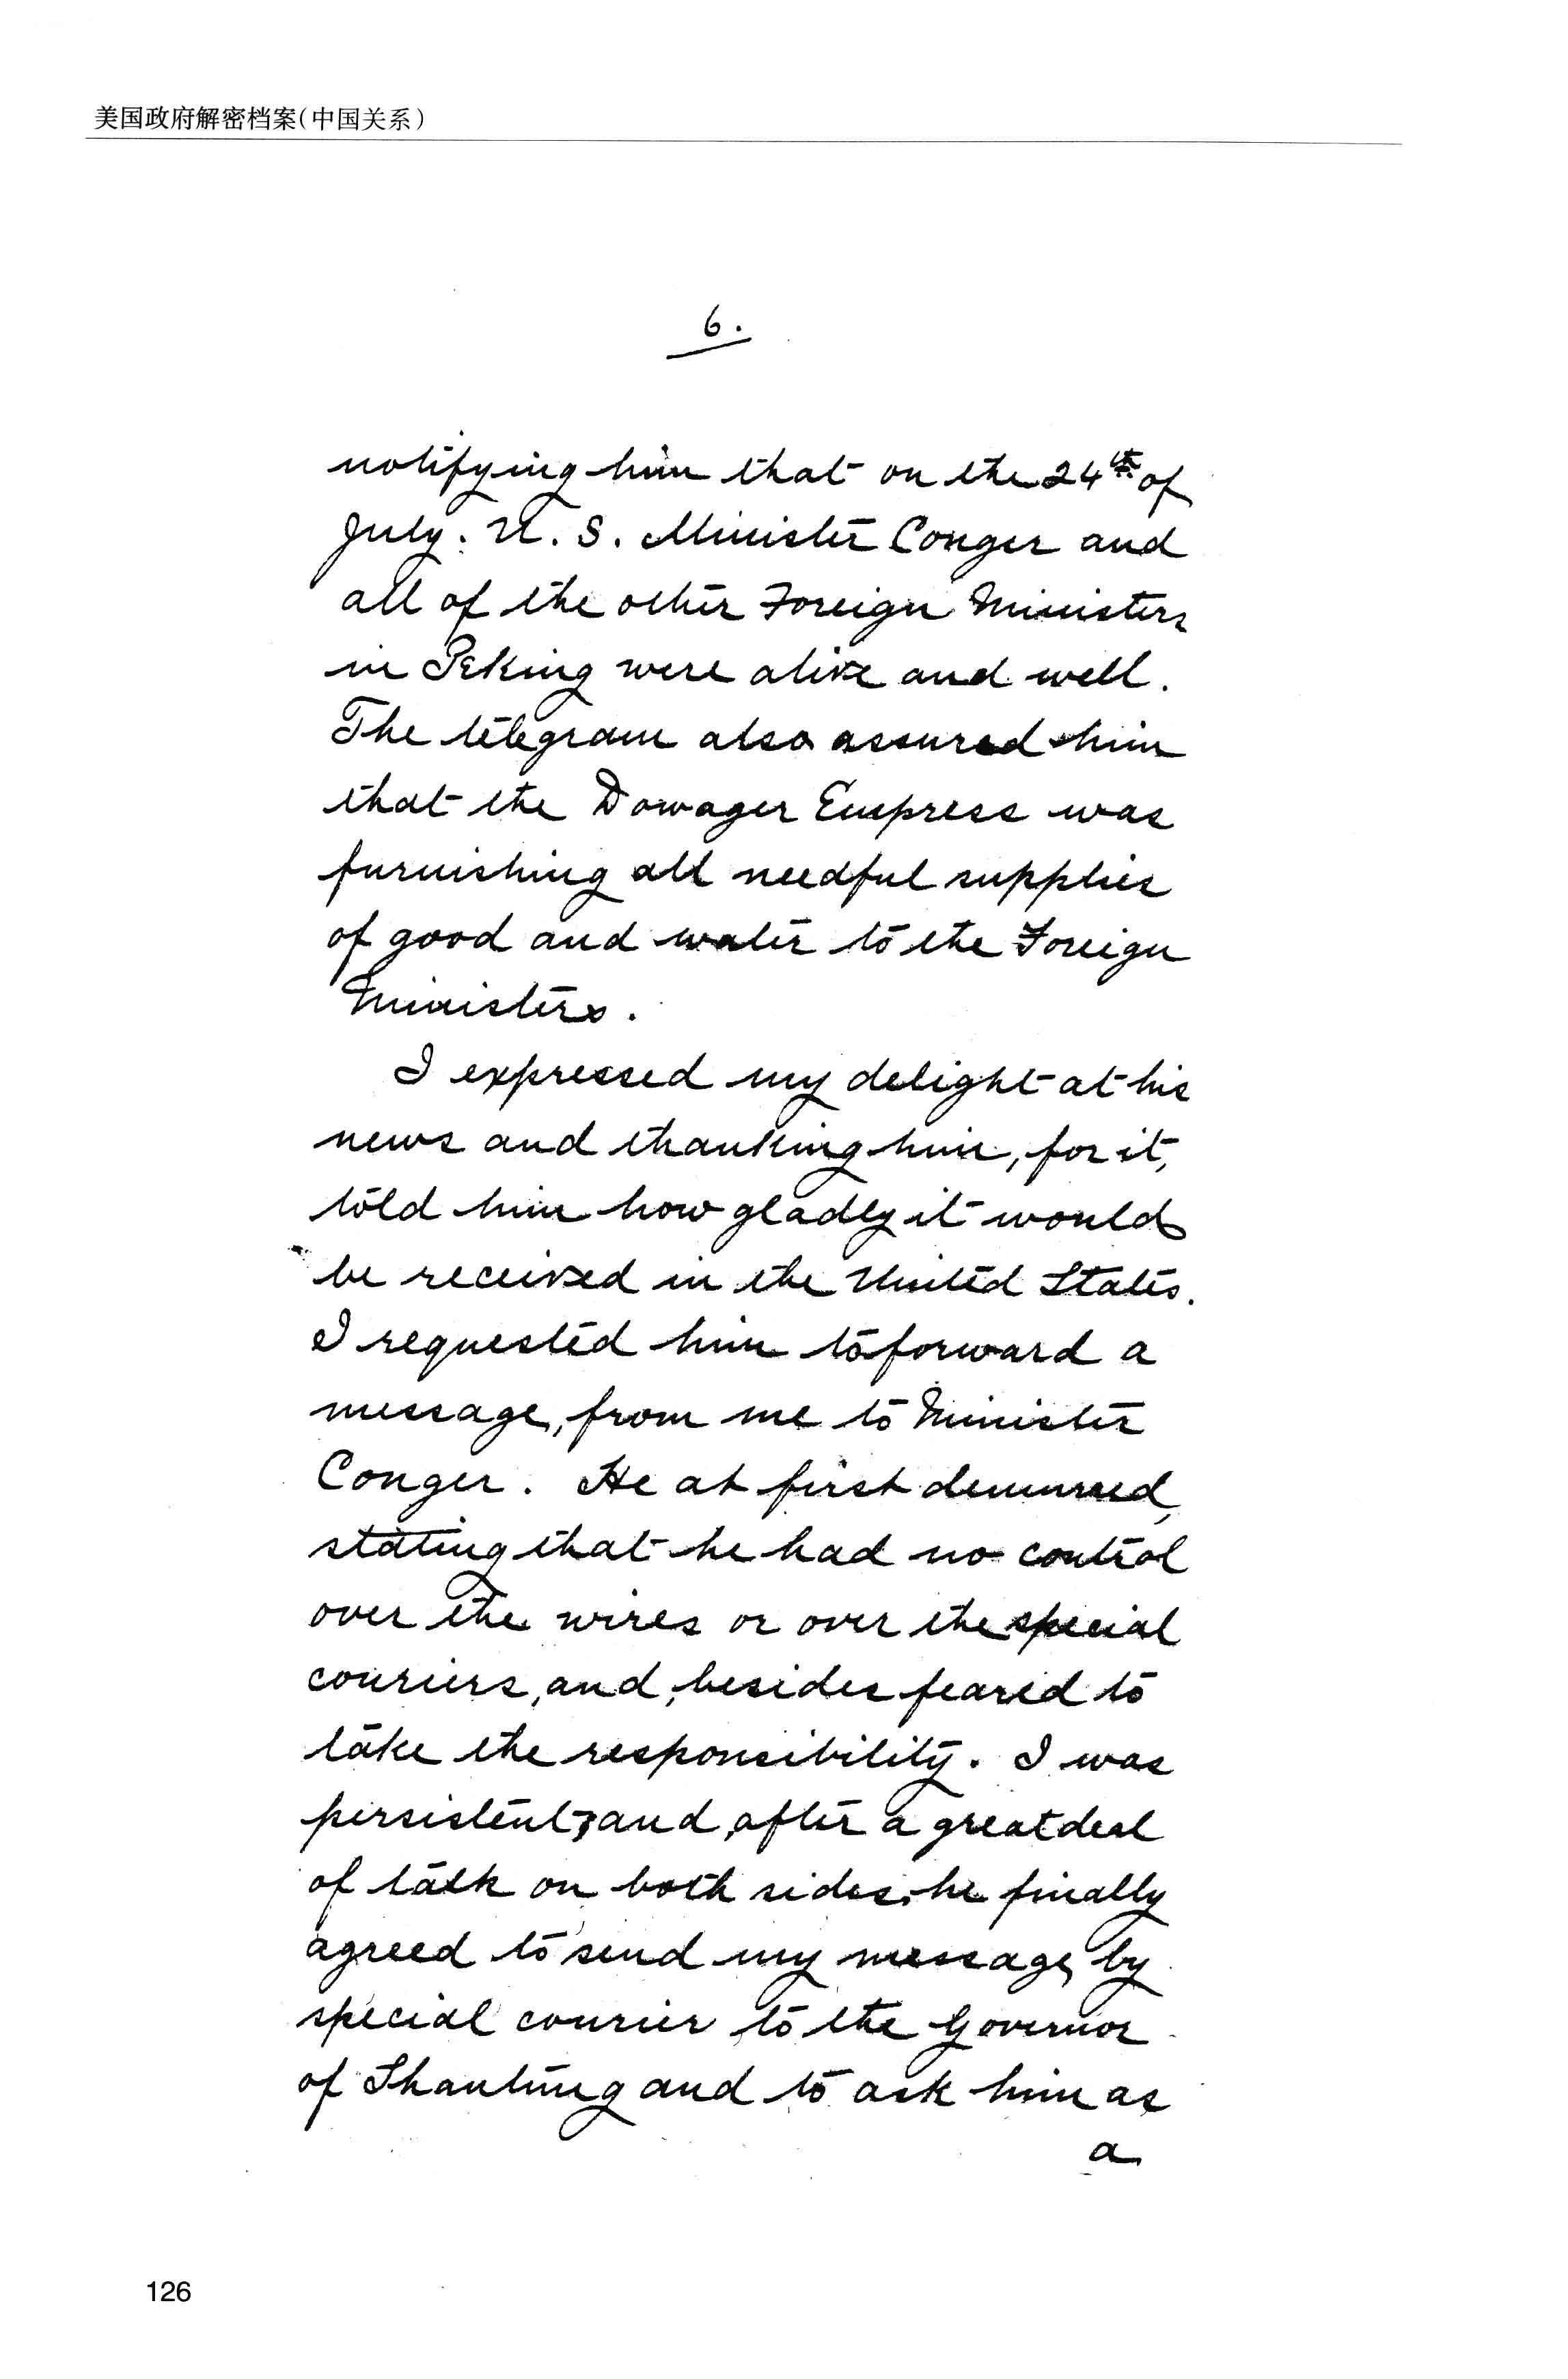 美国政府解密档案(中国关系)
6.
notifying him that on the 24th of
July. U. S. Minister Conger and
all of the other Foreign Ministers
in Peking were alive and well.
The telegram also assured him
that the Dowager Empress was
furnishing all needful supplies
of good and water to the Foreign
Ministers.
I expressed my delight at his
news and thanking him, for it,
told him how gladly it would
be received in the United States.
I requested him to forward a
message, from me to Minister
Conger. He at first demurred,
stating that he had no control
over the wires or over the special
couriers, and, besides feared to
take the responsibility. I was
persistent, and, after a great deal
of talk on both sides, he finally
agreed to send my message, by
special courier to the Governor
of Shantung and to ask him as
a
126